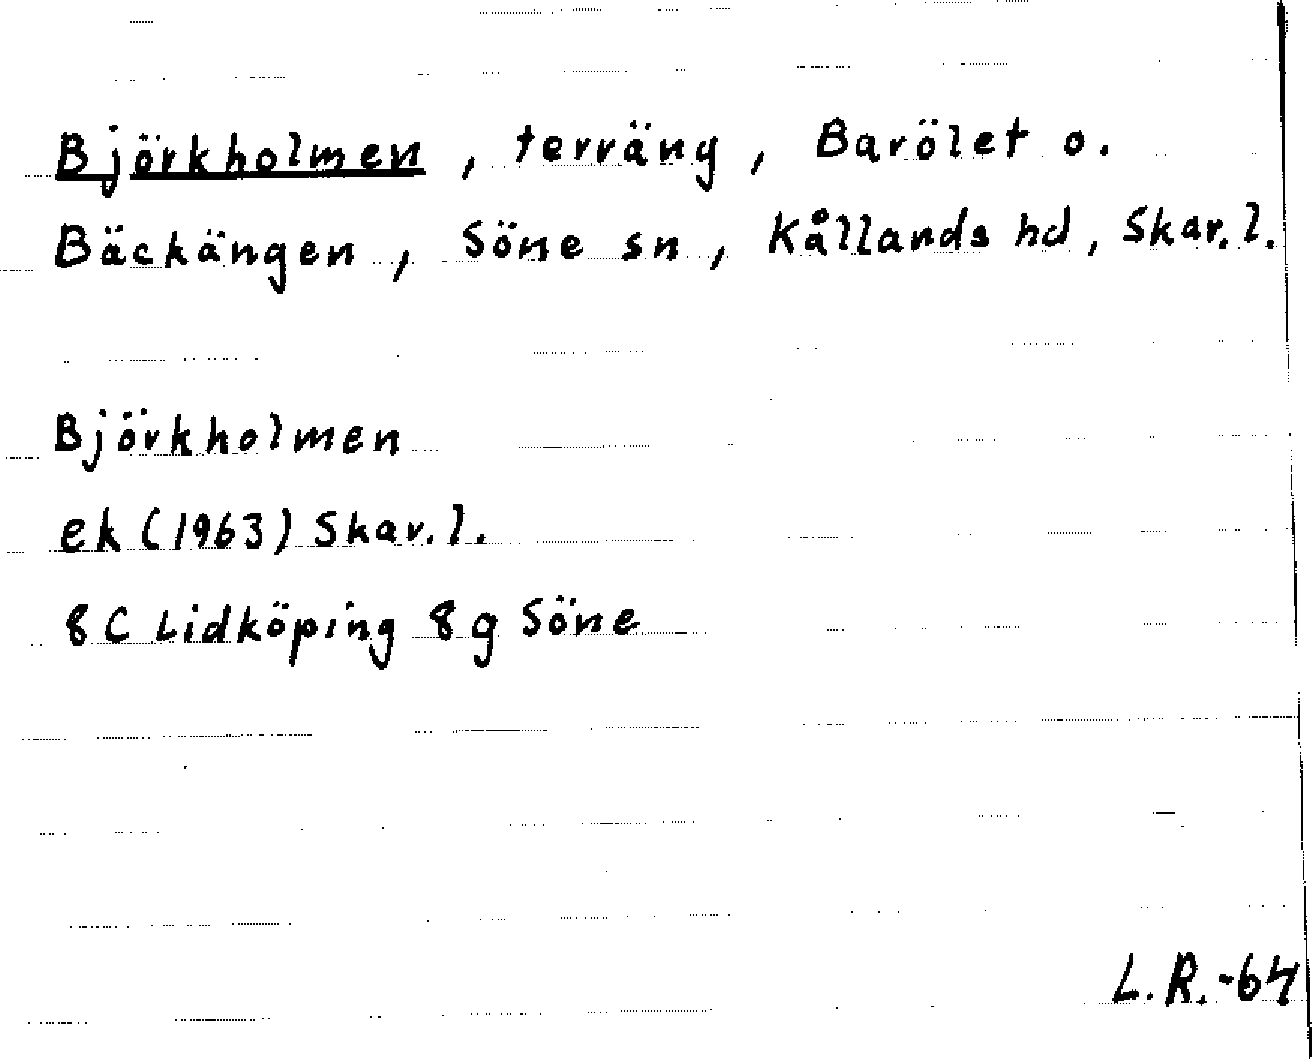 Björkholmen, terräng, Barölet o.
Bäckängen, Söne sn, Kållands hd, Skar. l.
Björkholmen
ek (1963) Skar. l.
8 C Lidköping 8 g Söne
L. R. -64